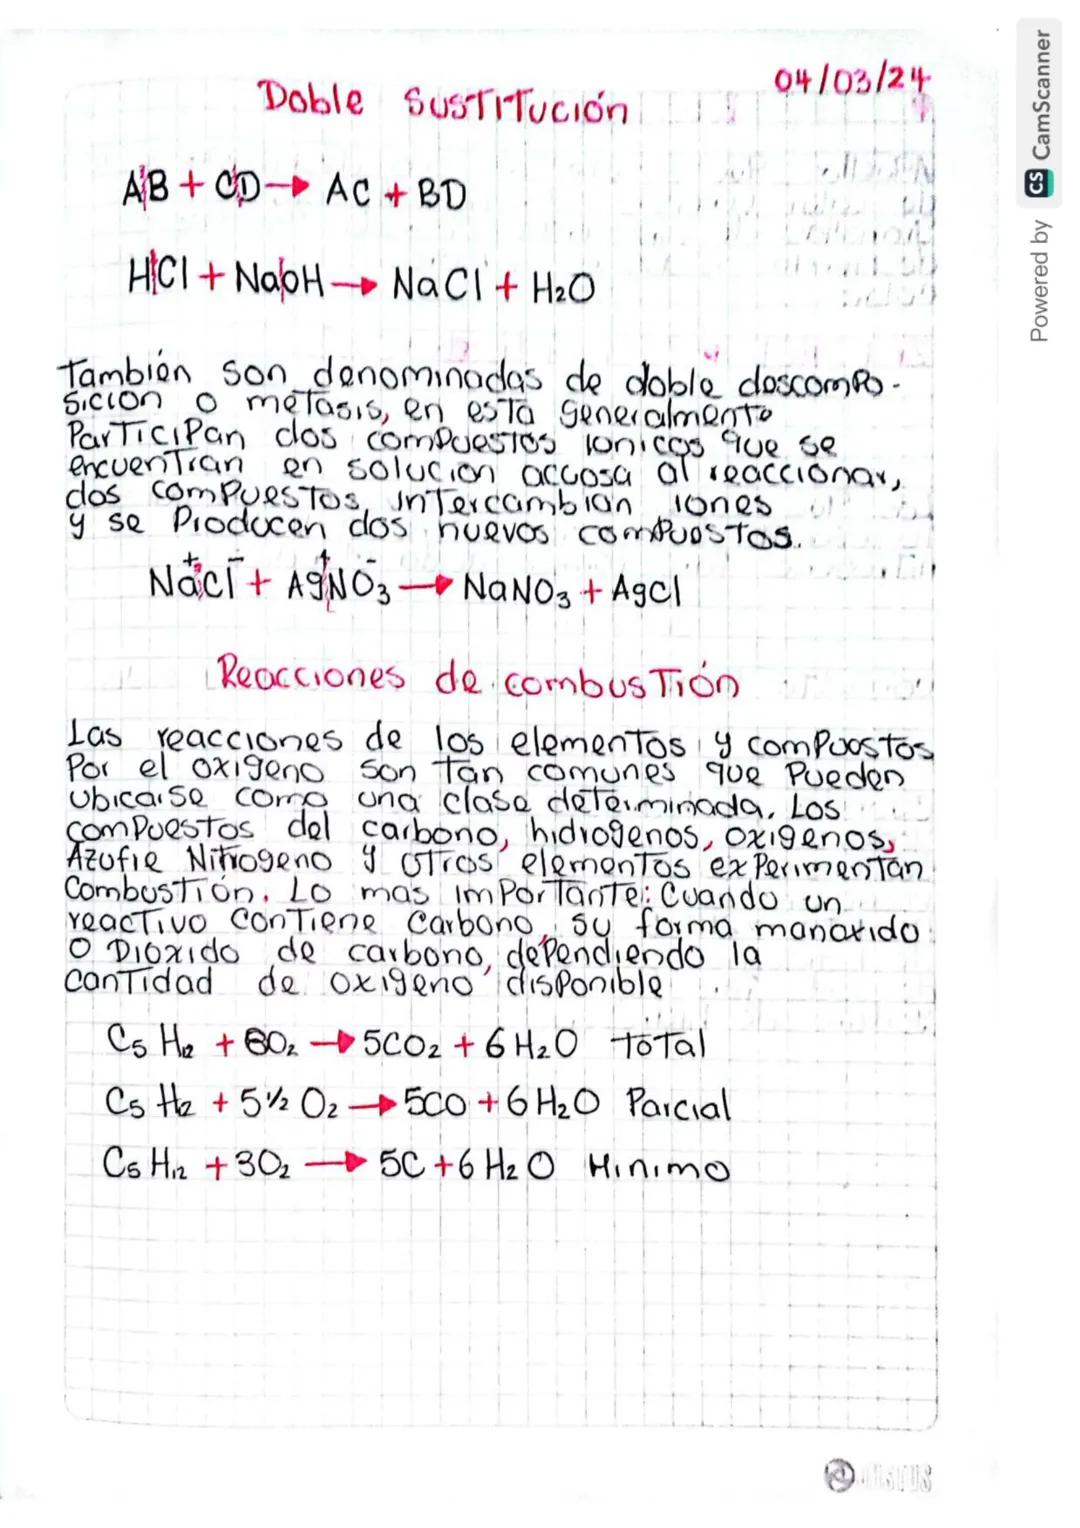 04/03/24
Doble SUSTITUCIÓN
AB + CD → AC + BD
HCl + NaOH → NaCl + H₂O
También son denominadas de doble descompo-
sicion o metasis, en esta generalmente
Participan dos compuestos ionicos que se
encuentran en solucion accosa al reaccionar,
dos compuestos intercambian iones
y se Producen dos nuevos compuestos.
Na⁺Cl⁻ + Ag⁺NO₃⁻ → NaNO₃ + AgCl
Reacciones de combustión
Las reacciones de los elementos y compuostos
Por el oxigeno son tan comunes que Pueden
Ubicarse como una clase determinada. Los
compuestos del carbono, hidrogenos, oxigenos,
Azufre Nitrogeno y otros elementos experimentan
Combustión. Lo mas importante: Cuando un
reactivo contiene Carbono, su forma monoxido
o Dioxido de carbono, dependiendo la
cantidad de oxigeno disponible
C₅ H₁₂ + 8O₂ → 5CO₂ + 6H₂O Total
C₅ H₂ + 5½ O₂ → 5CO + 6H₂O Parcial
C₅ H₁₂ + 3O₂ → 5C + 6H₂O Minimo
Powered by CS CamScanner